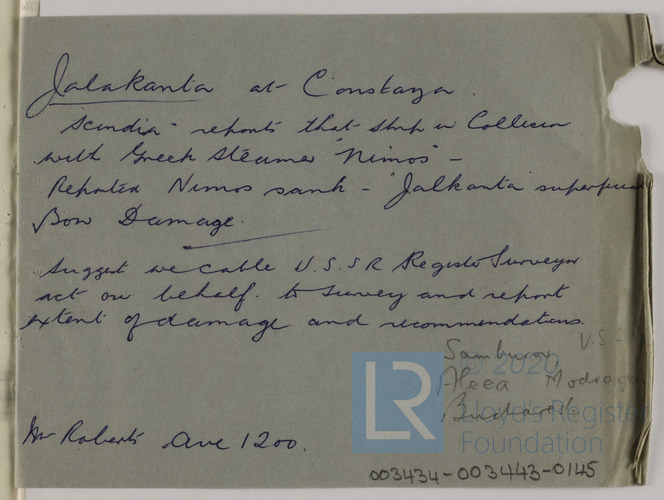 Jalakanta at Constanza.
"Scindia" reports that ship in Collision
with Greek Steamer "Nimos" -
Reported Nimos sank - "Jalkanta" superficial
Bow Damage.
Suggest we cable U.S.S R Register Surveyor
act on behalf. to Survey and report
extent of damage and recommendations.
U.S.S
Samburov,
Aleea Modrogan
Bucharest
© 2020
LR Lloyd's Register
Foundation
Mr Roberts Ave 1200.
003434-003443-0145